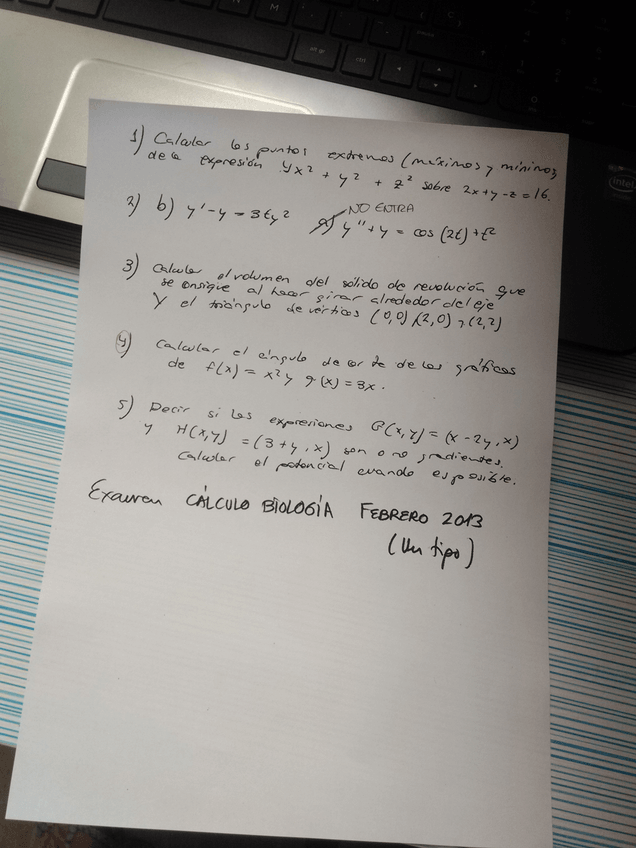 1) Calcular los puntos extremos (máximos y mínimos)
de la expresión 4x² + y² + z² sobre 2x+y-z=16.
NO ENTRA
2) b) y'-y = 3ty² a) y''+y = cos(2t)+t²
3) Calcular el volumen del sólido de revolución que
se consigue al hacer girar alrededor del eje
Y el triángulo de vértices (0,0), (2,0) y (2,2)
4) Calcular el ángulo de corte de las gráficas
de f(x) = x² y g(x) = 3x.
5) Decir si las expresiones G(x,y) = (x-2y, x)
y H(x,y) = (3+y, x) son o no gradientes.
Calcular el potencial cuando es posible.
Examen CÁLCULO BIOLOGÍA FEBRERO 2013
(Un tipo)
intel